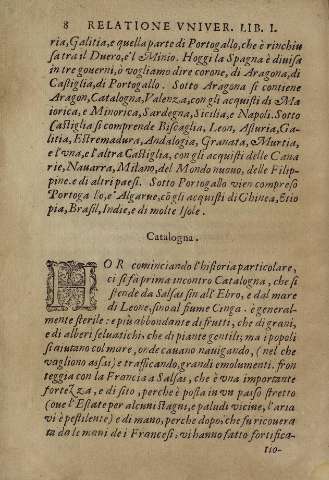 8 RELATIONE VNIVER. LIB. I.
ria, Galitia, e quella parte di Portogallo, che è rinchiu
sa tra il Duero, e'l Minio. Hoggi la Spagna è diuisa
in tre gouerni, ò vogliamo dire corone, di Aragona, di
Castiglia, di Portogallo. Sotto Aragona si contiene
Aragon, Catalogna, Valenza, con gli acquisti di Ma
iorica, e Minorica, Sardegna, Sicilia, e Napoli. Sotto
Castiglia si comprende Biscaglia, Leon, Asturia, Ga-
litia, Estremadura, Andalogia, Granata, Murtia,
e l'vna, e l'altra Castiglia, con gli acquisti delle Cana
rie, Nauarra, Milano, del Mondo nuouo, delle Filip-
pine. e di altri paesi. Sotto Portogallo vien compreso
Portogallo, e'Algarue, cõ gli acquisti di Ghinea, Etio
pia, Brasil, Indie, e di molte Isole.
Catalogna.
HOR cominciando l'historia particolare,
ci si fa prima incontro Catalogna, che si
stende da Salsas sin all'Ebro, e dal mare
di Leone, sino al fiume Cinga. è general-
mente sterile: e più abbondante di frutti, che di grani,
e di alberi seluatichi, che di piante gentili; ma i popoli
si aiutano col mare, onde cauano nauigando, (nel che
vagliono assai) e trafficando, grandi emolumenti. fron
teggia con la Francia a Salsas, che è vna importante
fortezza, e di sito, perche è posta in vn passo stretto
(oue l'Estate per alcuni stagni, e paludi vicine, l'aria
vi è pestilente) e di mano, perche dopo, che fu ricouera
ta da le mani de i Francesi, vi hanno fatto fortifica-
tio-